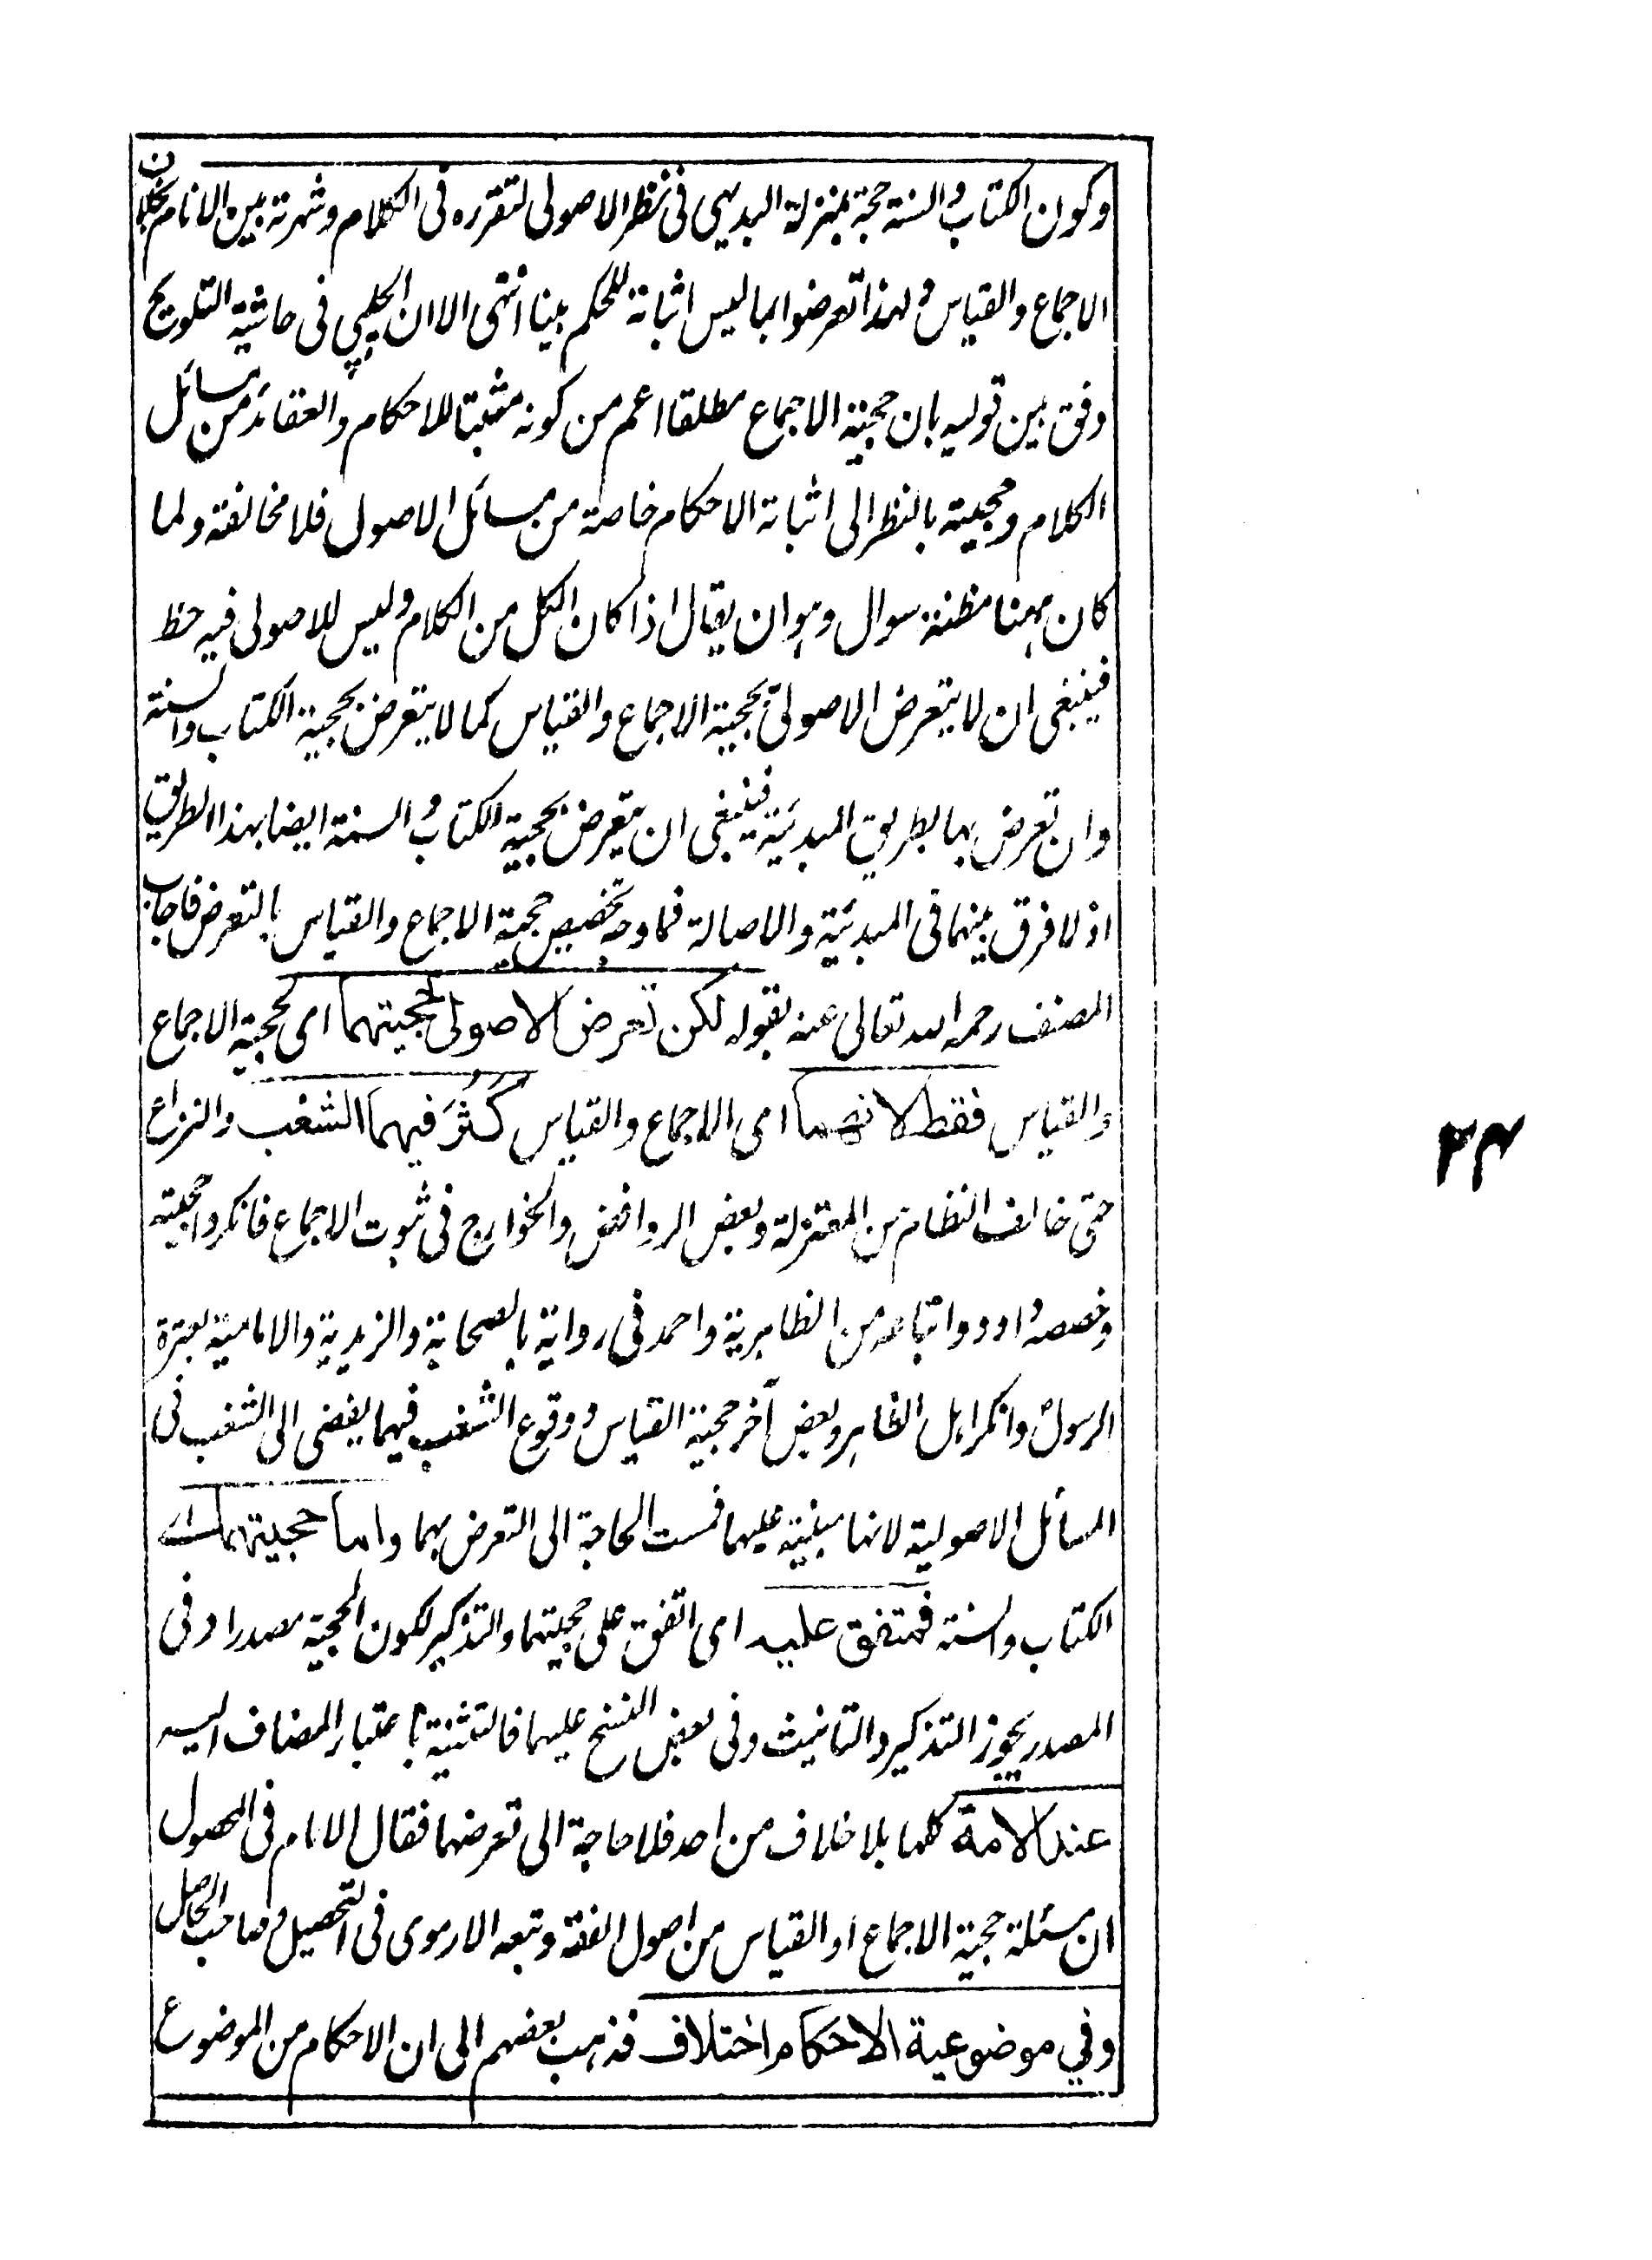 وكون الكتاب والسنة حجة بمنزلة البديهي فى نظر الاصولى لتقرره فى الكلام وشهرته بين الانام بخلاف
الاجماع والقياس ولهذا تعرضوا بما ليس اثباته للحكم بينا انتهى الا ان الچلپي فى حاشية التلويح
وفق بين قوليه بان حجية الاجماع مطلقا اعم من كونه مثبتا للاحكام والعقائد من مسائل
الكلام وحجيته بالنظر الى اثباته الاحكام خاصة من مسائل الاصول فلا مخالفة ولما
كان ههنا مظنة سوال وهو ان يقال اذا كان الكل من الكلام وليس للاصولى فيه حظ
فينبغى ان لا يتعرض الاصولى بحجية الاجماع والقياس كما لا يتعرض بحجية الكتاب والسنة
وان تعرض بهما بطريق المبدئية فينبغى ان يتعرض بحجية الكتاب والسنة ايضا بهذا الطريق
اذ لا فرق بينهما فى المبدئية والاصالة فما وجه تخصيص حجية الاجماع والقياس بالتعرض فاجاب
المصنف رحمه الله تعالى عنه بقوله لكن تعرض الاصولى لحجيتهما اى لحجية الاجماع
والقياس فقط لانهما اى الاجماع والقياس كَثُرَ فيهما الشغب والنزاع
حتى خالف النظام من المعتزلة وبعض الروافض والخوارج فى ثبوت الاجماع فانكروا حجيته
وخصصه داود واتباعه من الظاهرية واحمد فى رواية بالصحابة والزيدية والامامية بعترة
الرسول وانكر اهل الظاهر وبعض آخر حجية القياس ووقوع الشغب فيهما يفضى الى الشغب فى
المسائل الاصولية لانها مبنية عليهما فمست الحاجة الى التعرض بهما واما حجيتهما اے
الكتاب والسنة فمتفق عليه اى اتفق على حجيتهما والتذكير لكون الحجية مصدرا وفى
المصدر يجوز التذكير والتانيث وفى بعض النسخ عليهما فالتثنية باعتبار المضاف اليه
عند الامة كلها بلا خلاف من احد فلا حاجة الى تعرضهما فقال الامام فى المحصول
ان مسئلة حجية الاجماع او القياس من اصول الفقه وتبعه الارموى فى التحصيل وصاحب الحاصل
وفي موضوعية الاحكام اختلاف فذهب بعضهم الى ان الاحكام من الموضوع